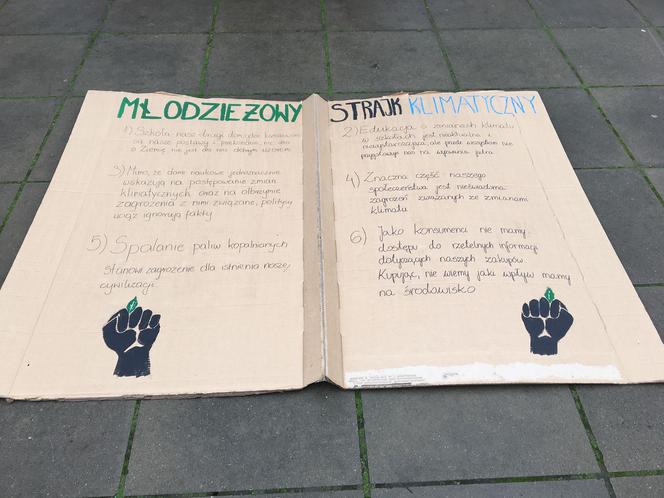 MŁODZIEŻOWY STRAJK KLIMATYCZNY
1) Szkoła nasz drugi dom, gdzie kształtowane
są nasze postawy i przekonania, nie dba
o Ziemię, nie jest dla nas dobrym wzorem.
3) Mimo, że dane naukowe jednoznacznie
wskazują na postępowanie zmian
klimatycznych oraz na olbrzymie
zagrożenia z nimi związane, politycy
wciąż ignorują fakty
5) Spalanie paliw kopalnianych
stanowi zagrożenie dla istnienia naszej
cywilizacji.
2) Edukacja o zmianach klimatu
w szkołach jest nieaktualna i
niewystarczająca, ale przede wszystkim nie
przygotowuje nas na wyzwania jutra
4) Znaczna część naszego
społeczeństwa jest nieświadoma
zagrożeń związanych ze zmianami
klimatu
6) Jako konsumenci nie mamy
dostępu do rzetelnych informacji
dotyczących naszych zakupów.
Kupując, nie wiemy jaki wpływ mamy
na środowisko